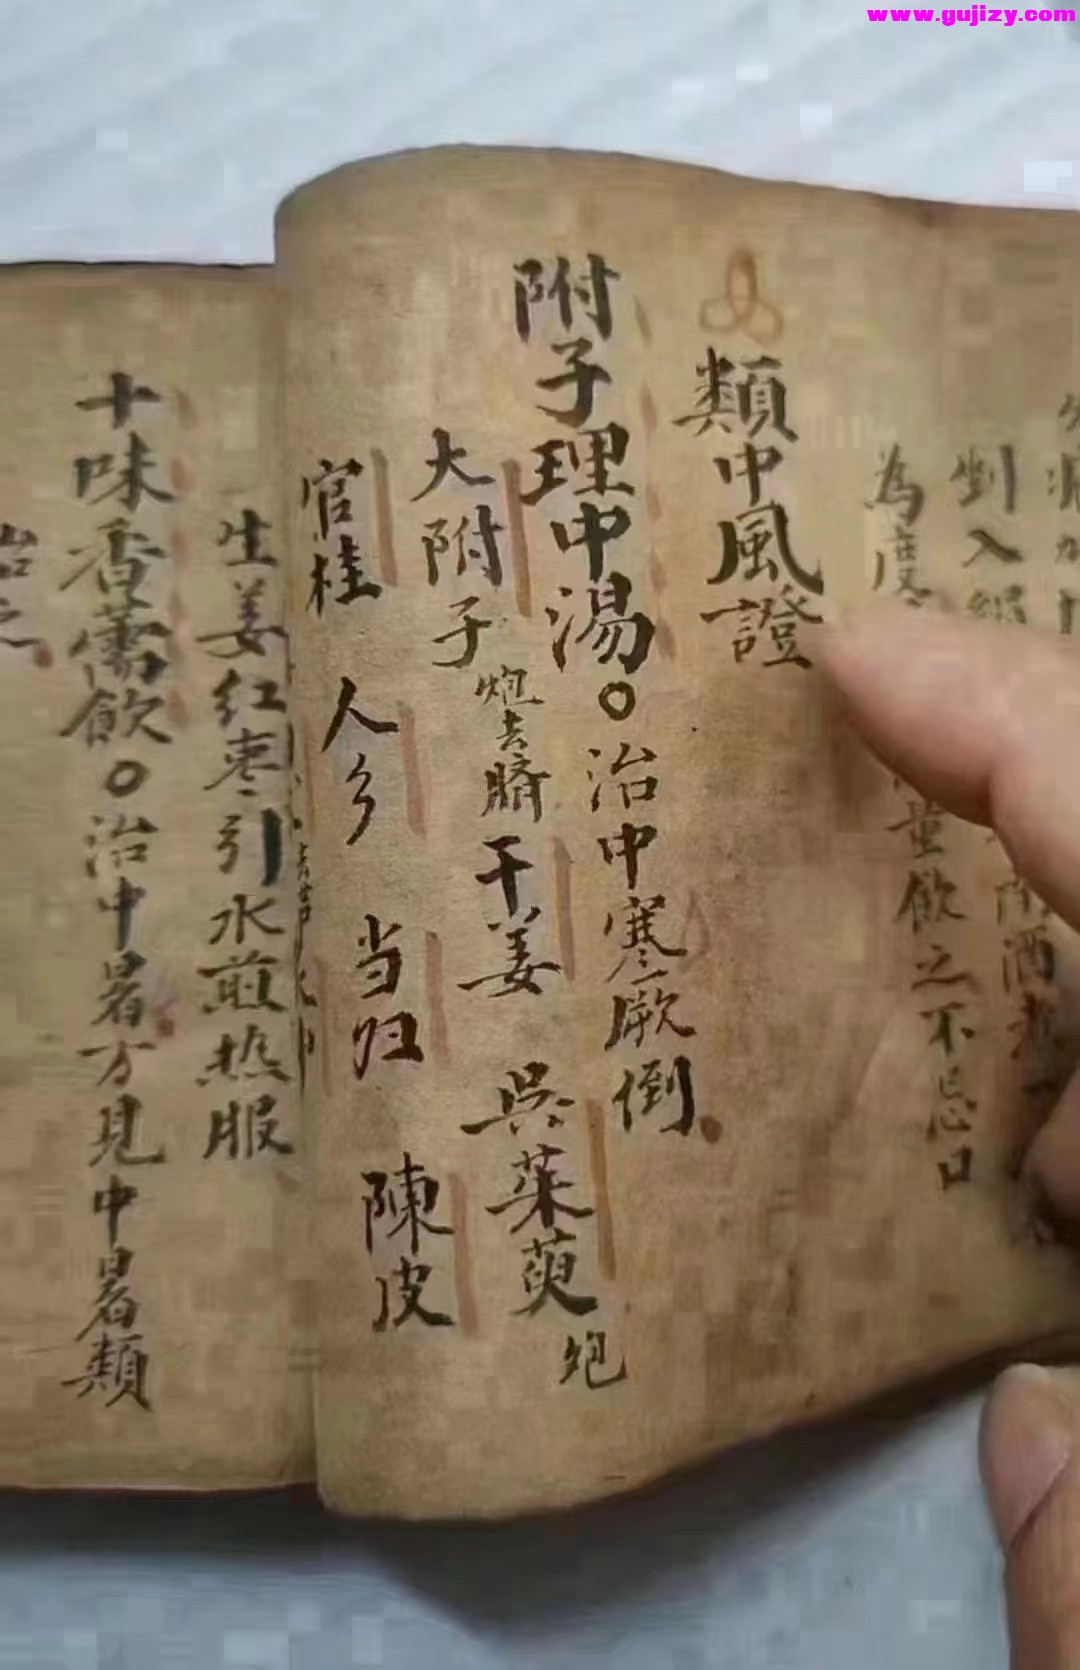 www.gujizy.com
剉入
為度
量飲之不忌口
類中風證
附子理中湯○治中寒厥倒
大附子炮去臍 干姜 吳茱萸炮
官桂 人彡 当归 陳皮
生姜红枣引水煎热服
十味香薷飲○治中暑方見中暑類
治之